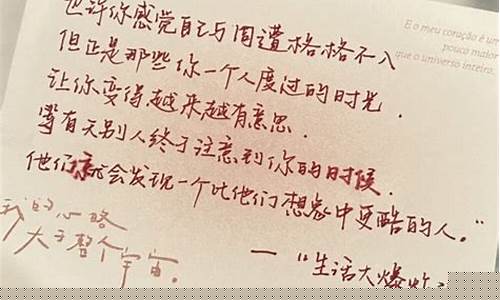 也许你感觉自己与周遭格格不入
但正是那些你一个人度过的时光.
让你变得越来越有意思.
等有天别人终于注意到你的时候.
他们就会发现一个比他们想象中更酷的人。”
— “生活大爆炸
E o meu coração é um
pouco maior
que o universo inteiro.
我的心略
大于整个宇宙。